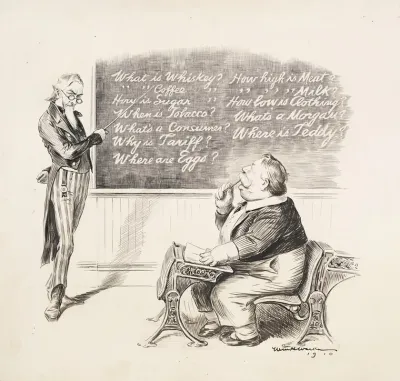 What is Whiskey?
" " Coffee "
How is Sugar "
When is Tobacco?
What's a Consumer?
Why is Tariff?
Where are Eggs?
How high is Meat?
" " " Milk?
How low is Clothing?
What's a Morgan?
Where is Teddy?
1910